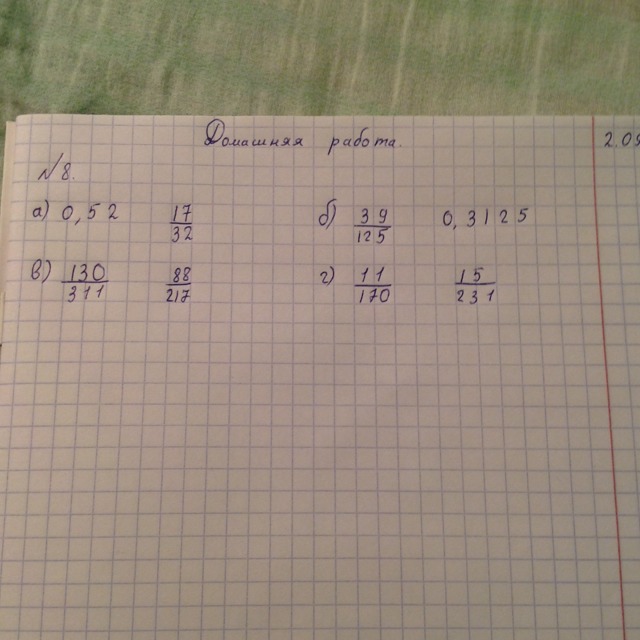 Домашняя работа. 2.09
№8.
а) 0,52 17/32 б) 39/125 0,3125
в) 130/311 88/217 г) 11/170 15/231